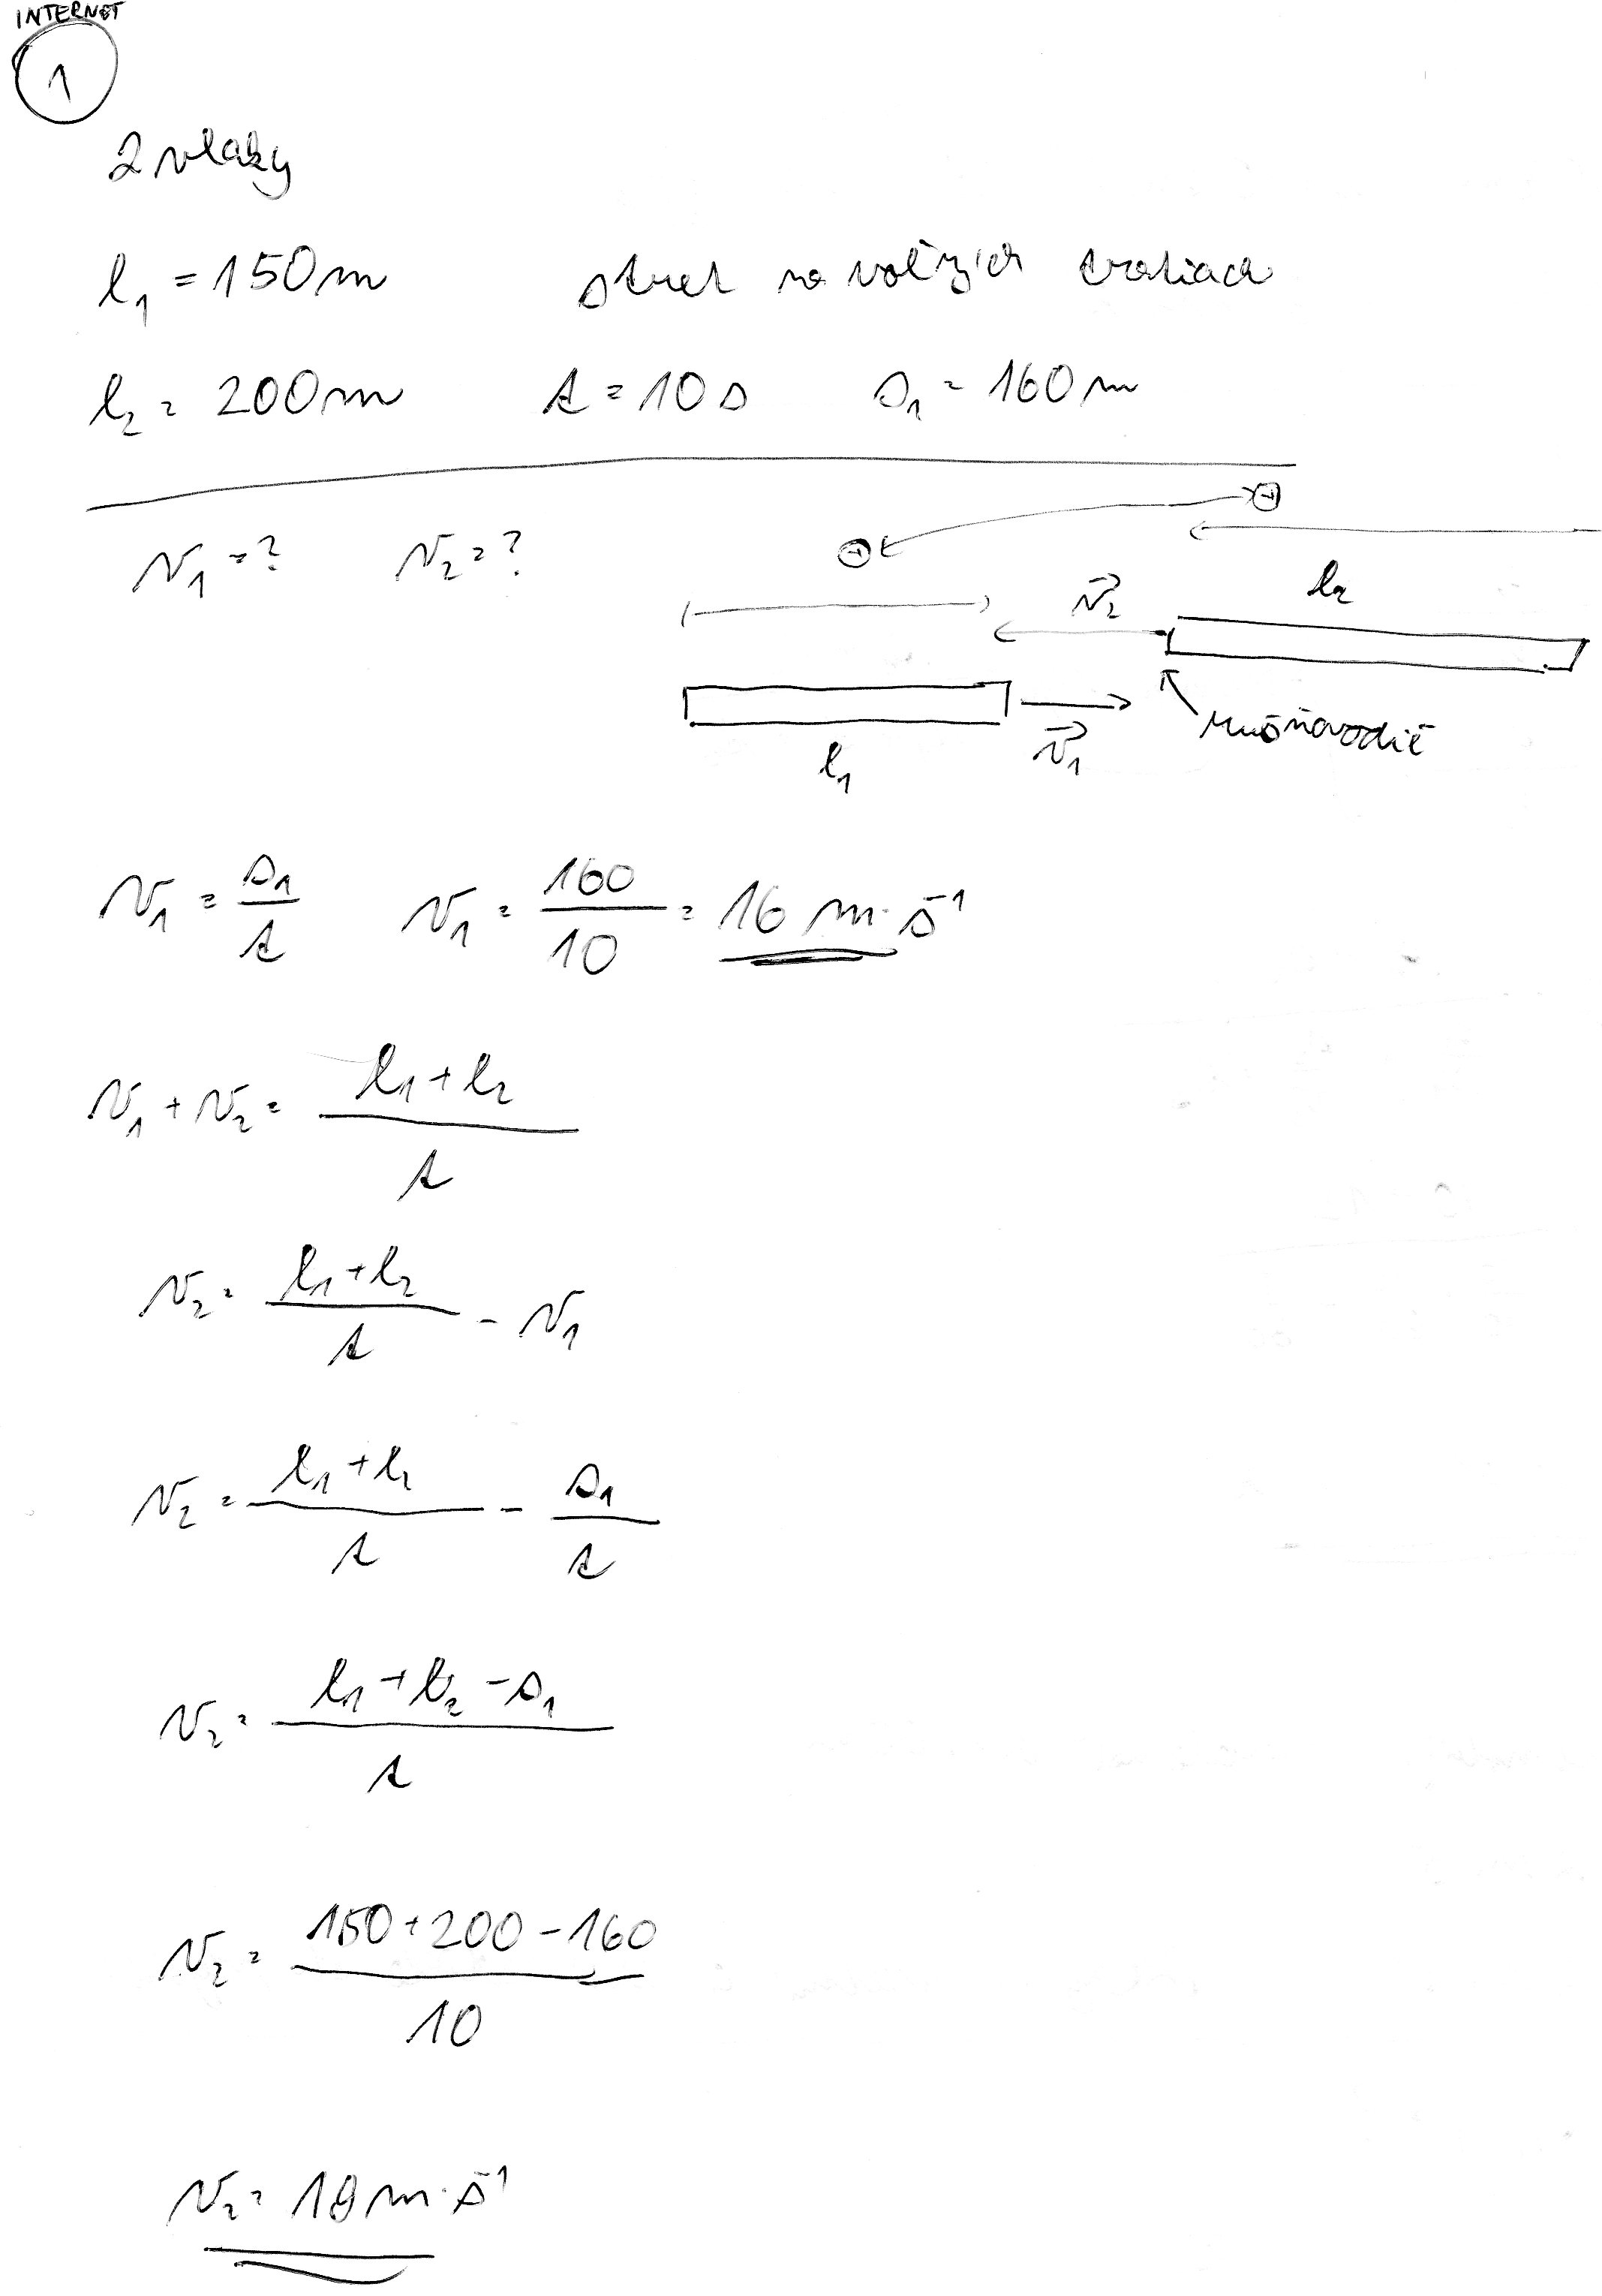 INTERNET
1
2 vlaky
l₁ = 150 m stret na voľných tratiach
l₂ = 200 m t = 10 s s₁ = 160 m
v₁ = ? v₂ = ?
l₂
v⃗₂
rušňovodič
l₁ v⃗₁
v₁ = s₁/t v₁ = 160/10 = 16 m·s⁻¹
v₁ + v₂ = (l₁ + l₂)/t
v₂ = (l₁ + l₂)/t - v₁
v₂ = (l₁ + l₂)/t - s₁/t
v₂ = (l₁ + l₂ - s₁)/t
v₂ = (150 + 200 - 160)/10
v₂ = 19 m·s⁻¹